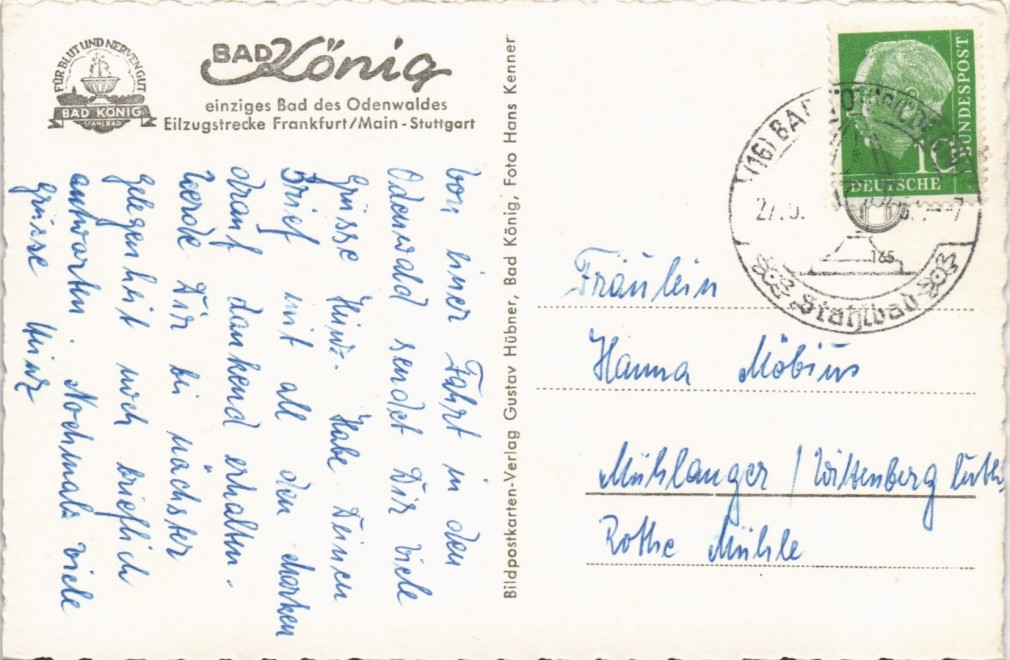 FÜR BLUT UND NERVEN GUT
BAD KÖNIG
STAHLBAD
BAD König
einziges Bad des Odenwaldes
Eilzugstrecke Frankfurt/Main - Stuttgart
von einer Fahrt in den
Odenwald sendet Dir viele
Grüsse Heinz. Habe Deinen
Brief mit all den Marken
drauf dankend erhalten.
Werde Dir bei nächster
Gelegenheit noch brieflich
antworten. Nochmals viele
Grüsse Heinz
Bildpostkarten-Verlag Gustav Hübner, Bad König, Foto Hans Kenner
DEUTSCHE
BUNDESPOST
10
(16) BAD
27.5.
Stahlbad
Fräulein
Hanna Möbius
Mühlanger / Wittenberg Luth.
Rothe Mühle